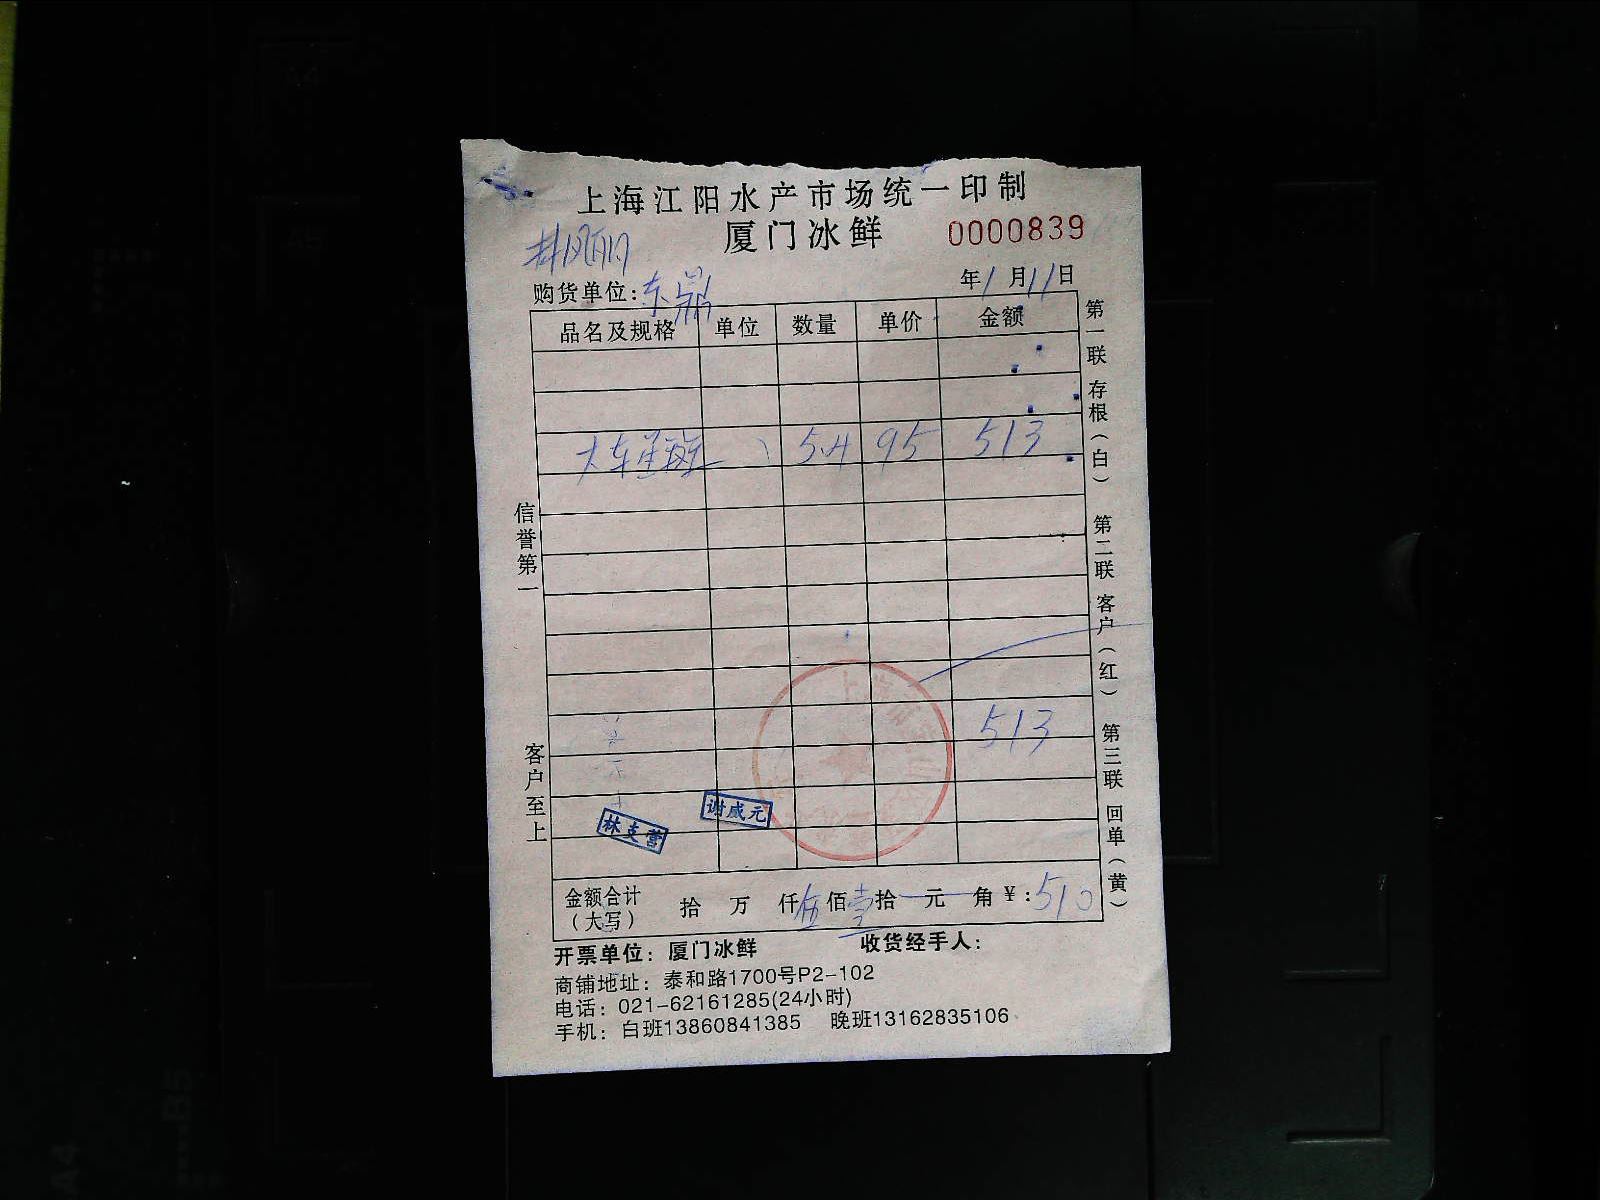 上海江阳水产市场统一印制
厦门冰鲜 0000839
购货单位:东鼎 年1月11日
品名及规格 单位 数量 单价 金额
大东星斑 5.4 95 513
513
谢成元
林支营
金额合计(大写) 拾 万 仟伍佰壹拾 元 角 ¥:510
开票单位:厦门冰鲜 收货经手人:
商铺地址:泰和路1700号P2-102
电话:021-62161285(24小时)
手机:白班13860841385 晚班13162835106
信誉第一
客户至上
第一联 存根(白)
第二联 客户(红)
第三联 回单(黄)